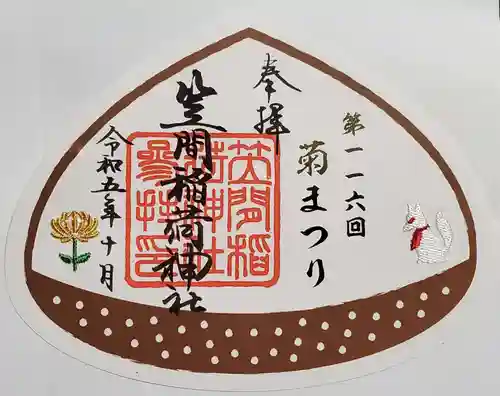 奉拝
第一一六回
菊まつり
笠間稲荷神社
笠間稲
荷神社
参拝印
令和五年十月